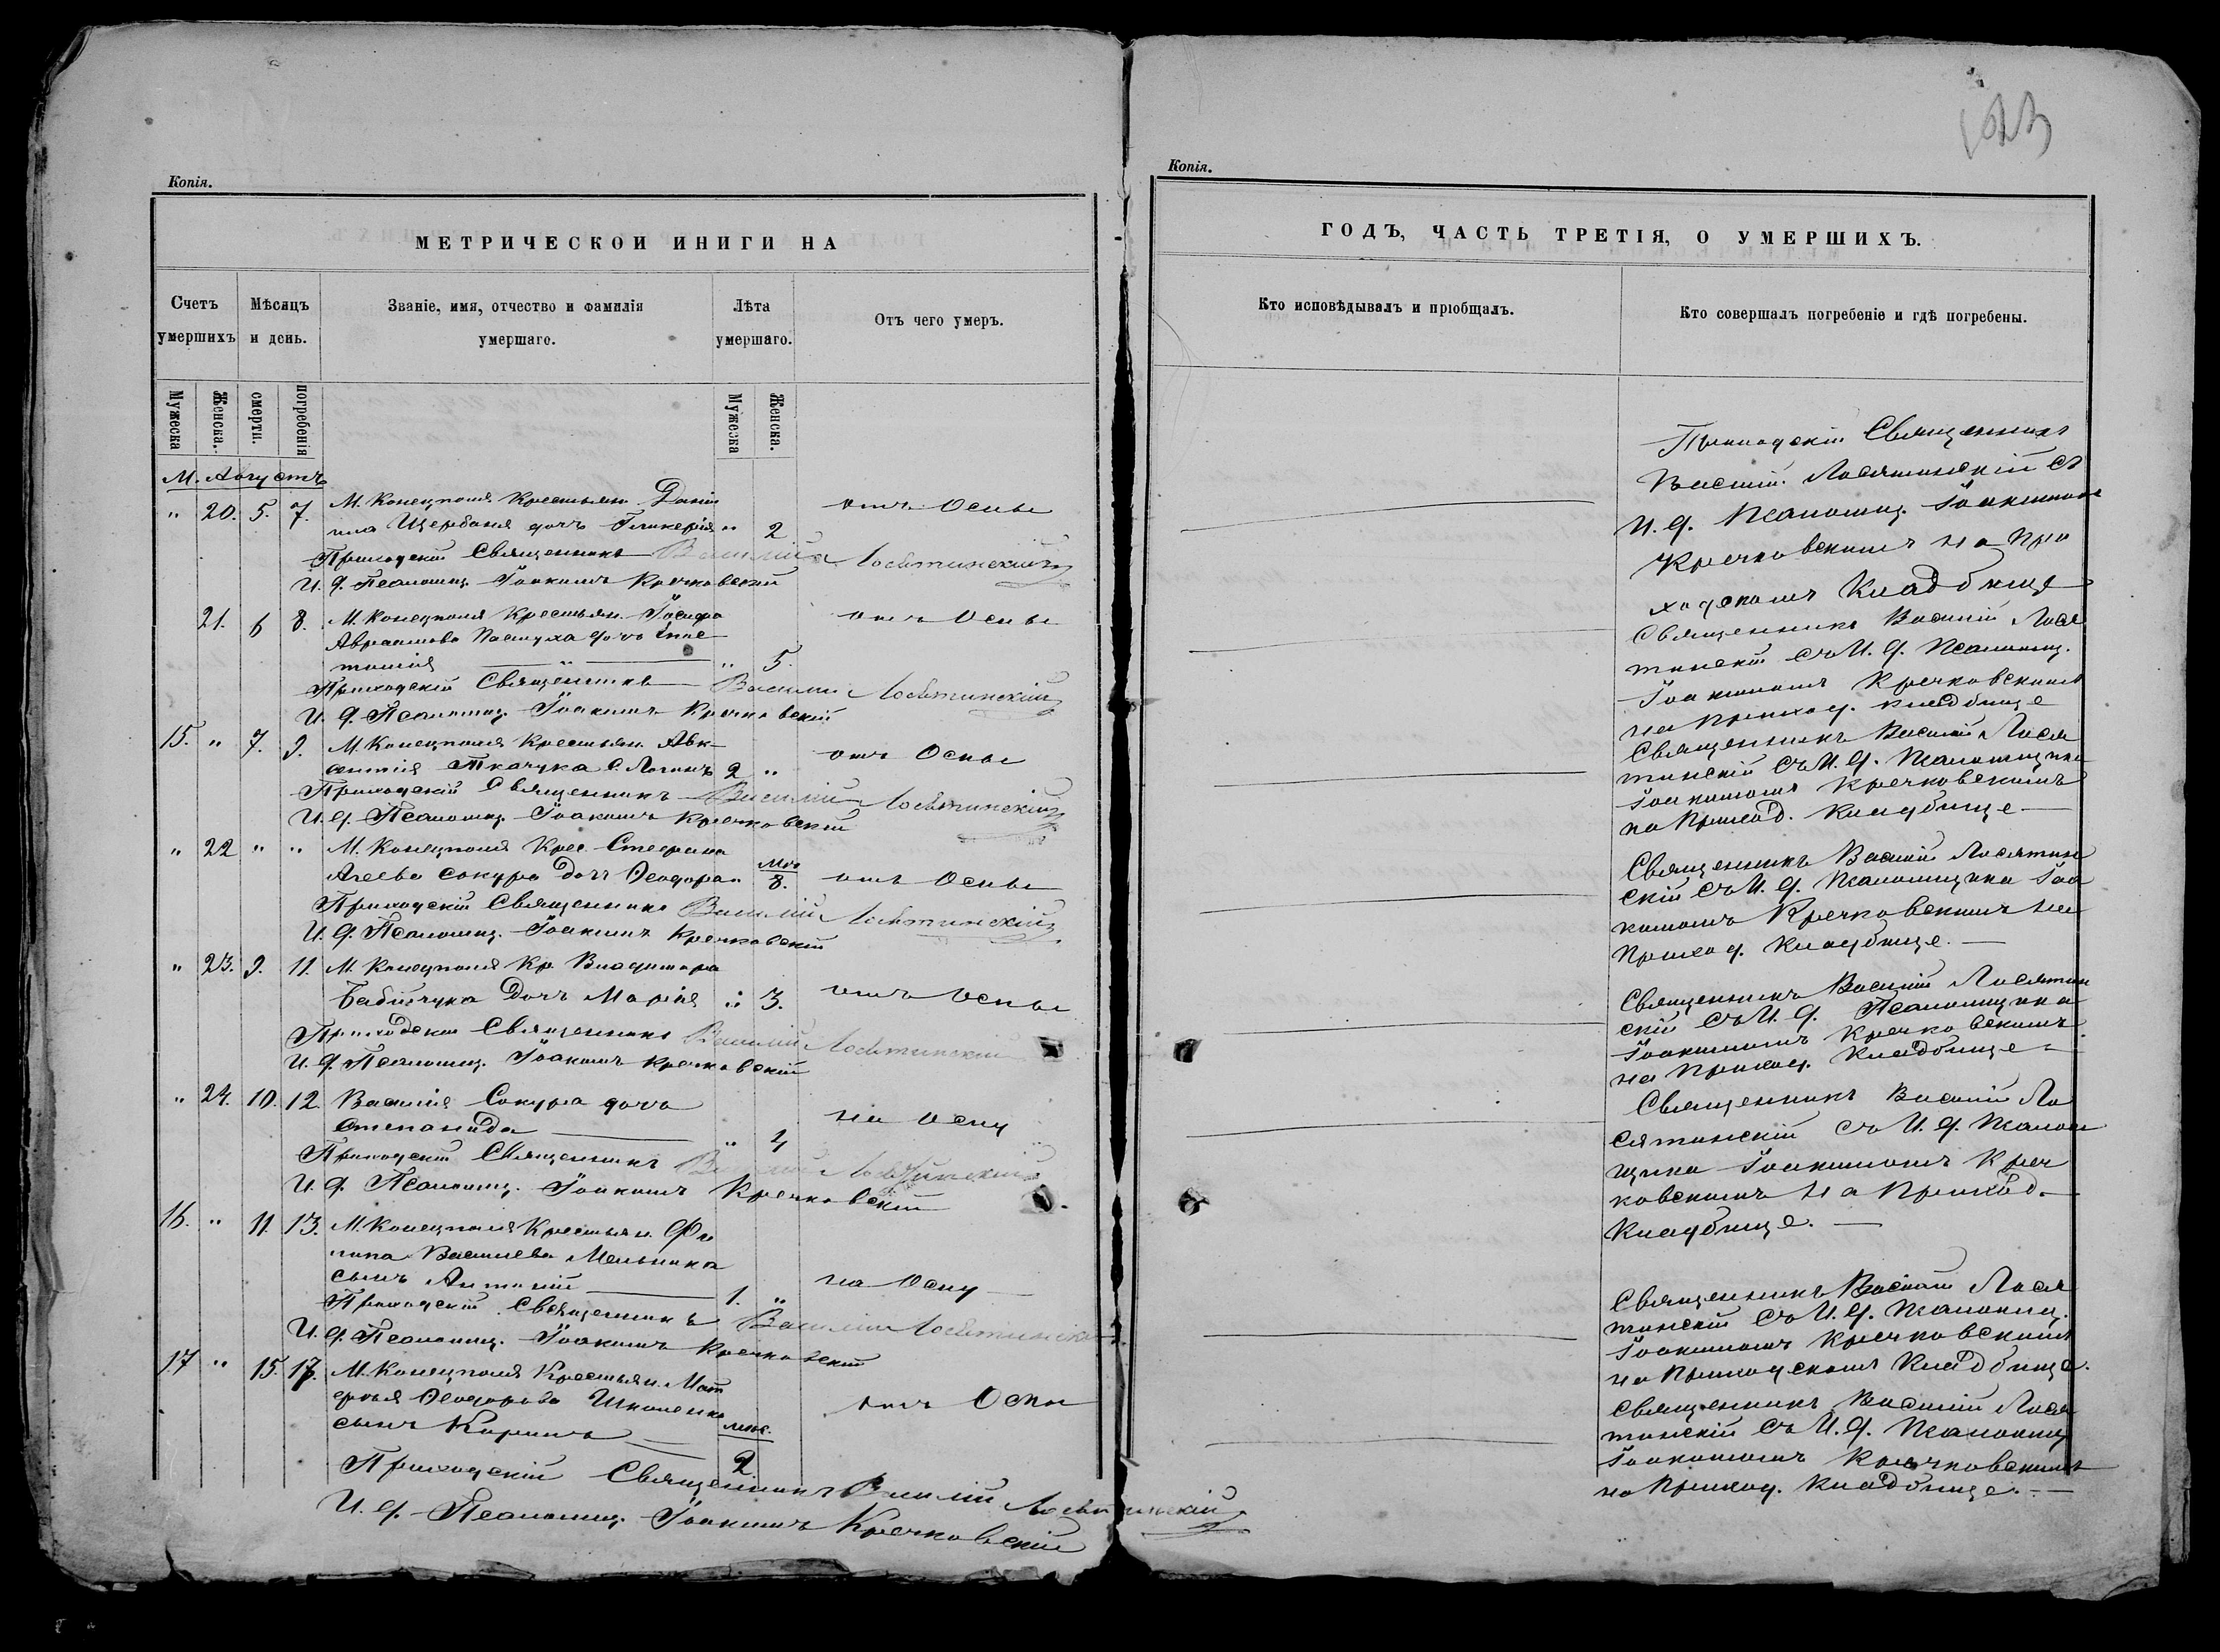 Копія.
МЕТРИЧЕСКОИ ИНИГИ НА
Счетъ умершихъ
Мѣсяцъ и день.
Званіе, имя, отчество и фамилія умершаго.
Лѣта умершаго.
Отъ чего умеръ.
Мужеска
Женска.
смерти.
погребенія
Мужеска
Женска.
М. Августъ
" 20. 5. 7. М. Конецполя Крестьян. Дани
ила Щербаня дочъ Гликерія " 2 отъ Оспы
Приходскій Священникъ Василій Лосятинскій
И. д. Псаломщ. Іоакимъ Кречковскій
21. 6 8. М. Конецполя Крестьян. Іосифа отъ Оспы
Авраамова Пастуха дочъ Анас
тасія " 5.
Приходскій Священникъ Василій Лосятинскій
И. д. Псаломщ. Іоакимъ Кречковскій
15. " 7. 9. М. Конецполя Крестьян. Авк-
сентія Ткачука с. Логинъ 2 " отъ Оспы
Приходскій Священникъ Василій Лосятинскій
И. д. Псаломщ. Іоакимъ Кречковскій
" 22 " " М. Конецполя Крес. Стефана
Агеева Сокура дочъ Ѳеодора " мѣс 8. отъ Оспы
Приходскій Священникъ Василій Лосятинскій
И. д. Псаломщ. Іоакимъ Кречковскій
" 23. 9. 11. М. Конецполя Кр. Владимира
Бабійчука дочъ Марія " 3. отъ Оспы
Приходскій Священникъ Василій Лосятинскій
И. д. Псаломщ. Іоакимъ Кречковскій
" 24. 10. 12. Василія Сокура дочъ на Оспу
Степанида " 4
Приходскій Священникъ Василій Лосятинскій
И. д. Псаломщ. Іоакимъ Кречковскій
16. " 11. 13. М. Конецполя Крестьян. Фи
липа Васильева Мельника
сынъ Антоній 1. " на Оспу
Приходскій Священникъ Василій Лосятинскій
И. д. Псаломщ. Іоакимъ Кречковскій
17 " 15. 17. М. Конецполя Крестьян. Мат
фея Ѳеодорова отъ Оспы
сынъ Карпъ мѣс. 2
Приходскій Священникъ Василій Лосятинскій
И. д. Псаломщ. Іоакимъ Кречковскій
Копія.
ГОДЪ, ЧАСТЬ ТРЕТІЯ, О УМЕРШИХЪ.
Кто исповѣдывалъ и пріобщалъ.
Кто совершалъ погребеніе и гдѣ погребены.
Приходскій Священникъ
Василій Лосятинскій съ
И. д. Псаломщ. Іоакимомъ
Кречковскимъ на При
ходскомъ Кладбище
Священникъ Василій Лося
тинскій съ И. д. Псаломщ.
Іоакимомъ Кречковскимъ
на Приход. кладбище
Священникъ Василій Лося
тинскій съ И. д. Псаломщика
Іоакимомъ Кречковскимъ
на Приход. Кладбище
Священникъ Василій Лосятин
скій съ И. д. Псаломщика Іоа
кимомъ Кречковскимъ на
Приход. Кладбище.
Священникъ Василій Лосятин
скій съ И. д. Псаломщика
Іоакимомъ Кречковскимъ
на Приход. Кладбище
Священникъ Василій Ло
сятинскій съ И. д. Псалом
щика Іоакимомъ Креч
ковскимъ на Приход.
Кладбище.
Священникъ Василій Лося
тинскій съ И. д. Псаломщ.
Іоакимомъ Кречковскимъ
на Приходскомъ Кладбище.
Священникъ Василій Лося
тинскій съ И. д. Псаломщ
Іоакимомъ Кречковскимъ
на Приход. Кладбище.